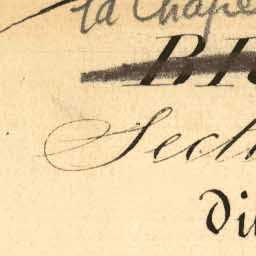 la Chape
BR
Sect
di